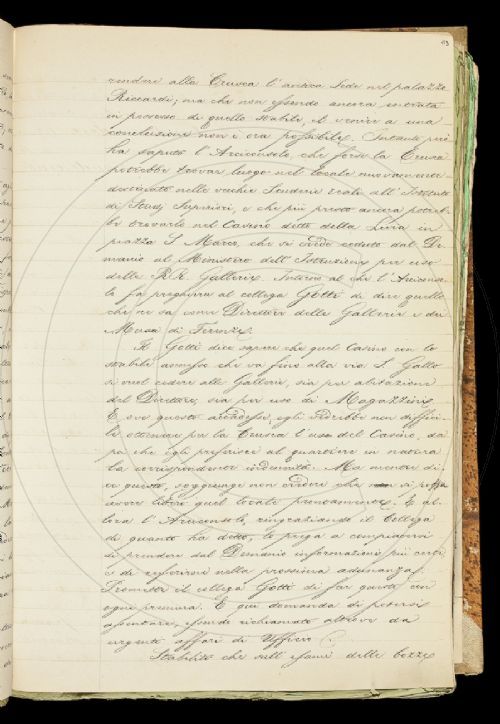 113
rendere alla Crusca l'antica Sede nel palazzo
Riccardi; ma che non essendo ancora entrata
in possesso di quello stabile, il venire a una
conclusione non è ora possibile. Intanto però
ha saputo l'Arciconsolo, che forse la Crusca
potrebbe trovar luogo nel locale nuovamente
nelle vecchie Scuderie reali all'Istituto
di Studj Superiori, e che più presto ancora potreb-
be trovarlo nel Casino detto della Livia in
piazza S. Marco, che si crede ceduto dal De-
manio al Ministero dell'Istruzione per uso
delle RR. Gallerie. Intorno al che l'Arciconso-
lo fa preghiera al collega Gotti di dire quello
che ne sa come Direttore delle Gallerie e dei
Musei di Firenze.
Il Gotti dice sapere che quel Casino con lo
stabile annesso che va fino alla via S. Gallo
si vuol cedere alle Gallerie, sia per abitazione
del Direttore, sia per uso di Magazzino.
E ove questo accadesse, egli vedrebbe non diffici-
le ottenere per la Crusca l'uso del Casino, da
poi che egli preferisce al quartiere in natura
la corrispondente indennità. Ma mentre di-
ce questo, soggiunge non credere che si possa
avere libero quel locale prontamente. E al-
lora l'Arciconsolo, ringraziando il Collega
di quanto ha detto, lo prega a compiacersi
di prendere dal Demanio informazioni più certe
e di riferirne nella prossima adunanza.
Promette il collega Gotti di far questo con
ogni premura. E qui domanda di potersi
assentare, essendo richiamato altrove da
urgenti affari di Uffizio.
Stabilito che sull'esame delle bozze